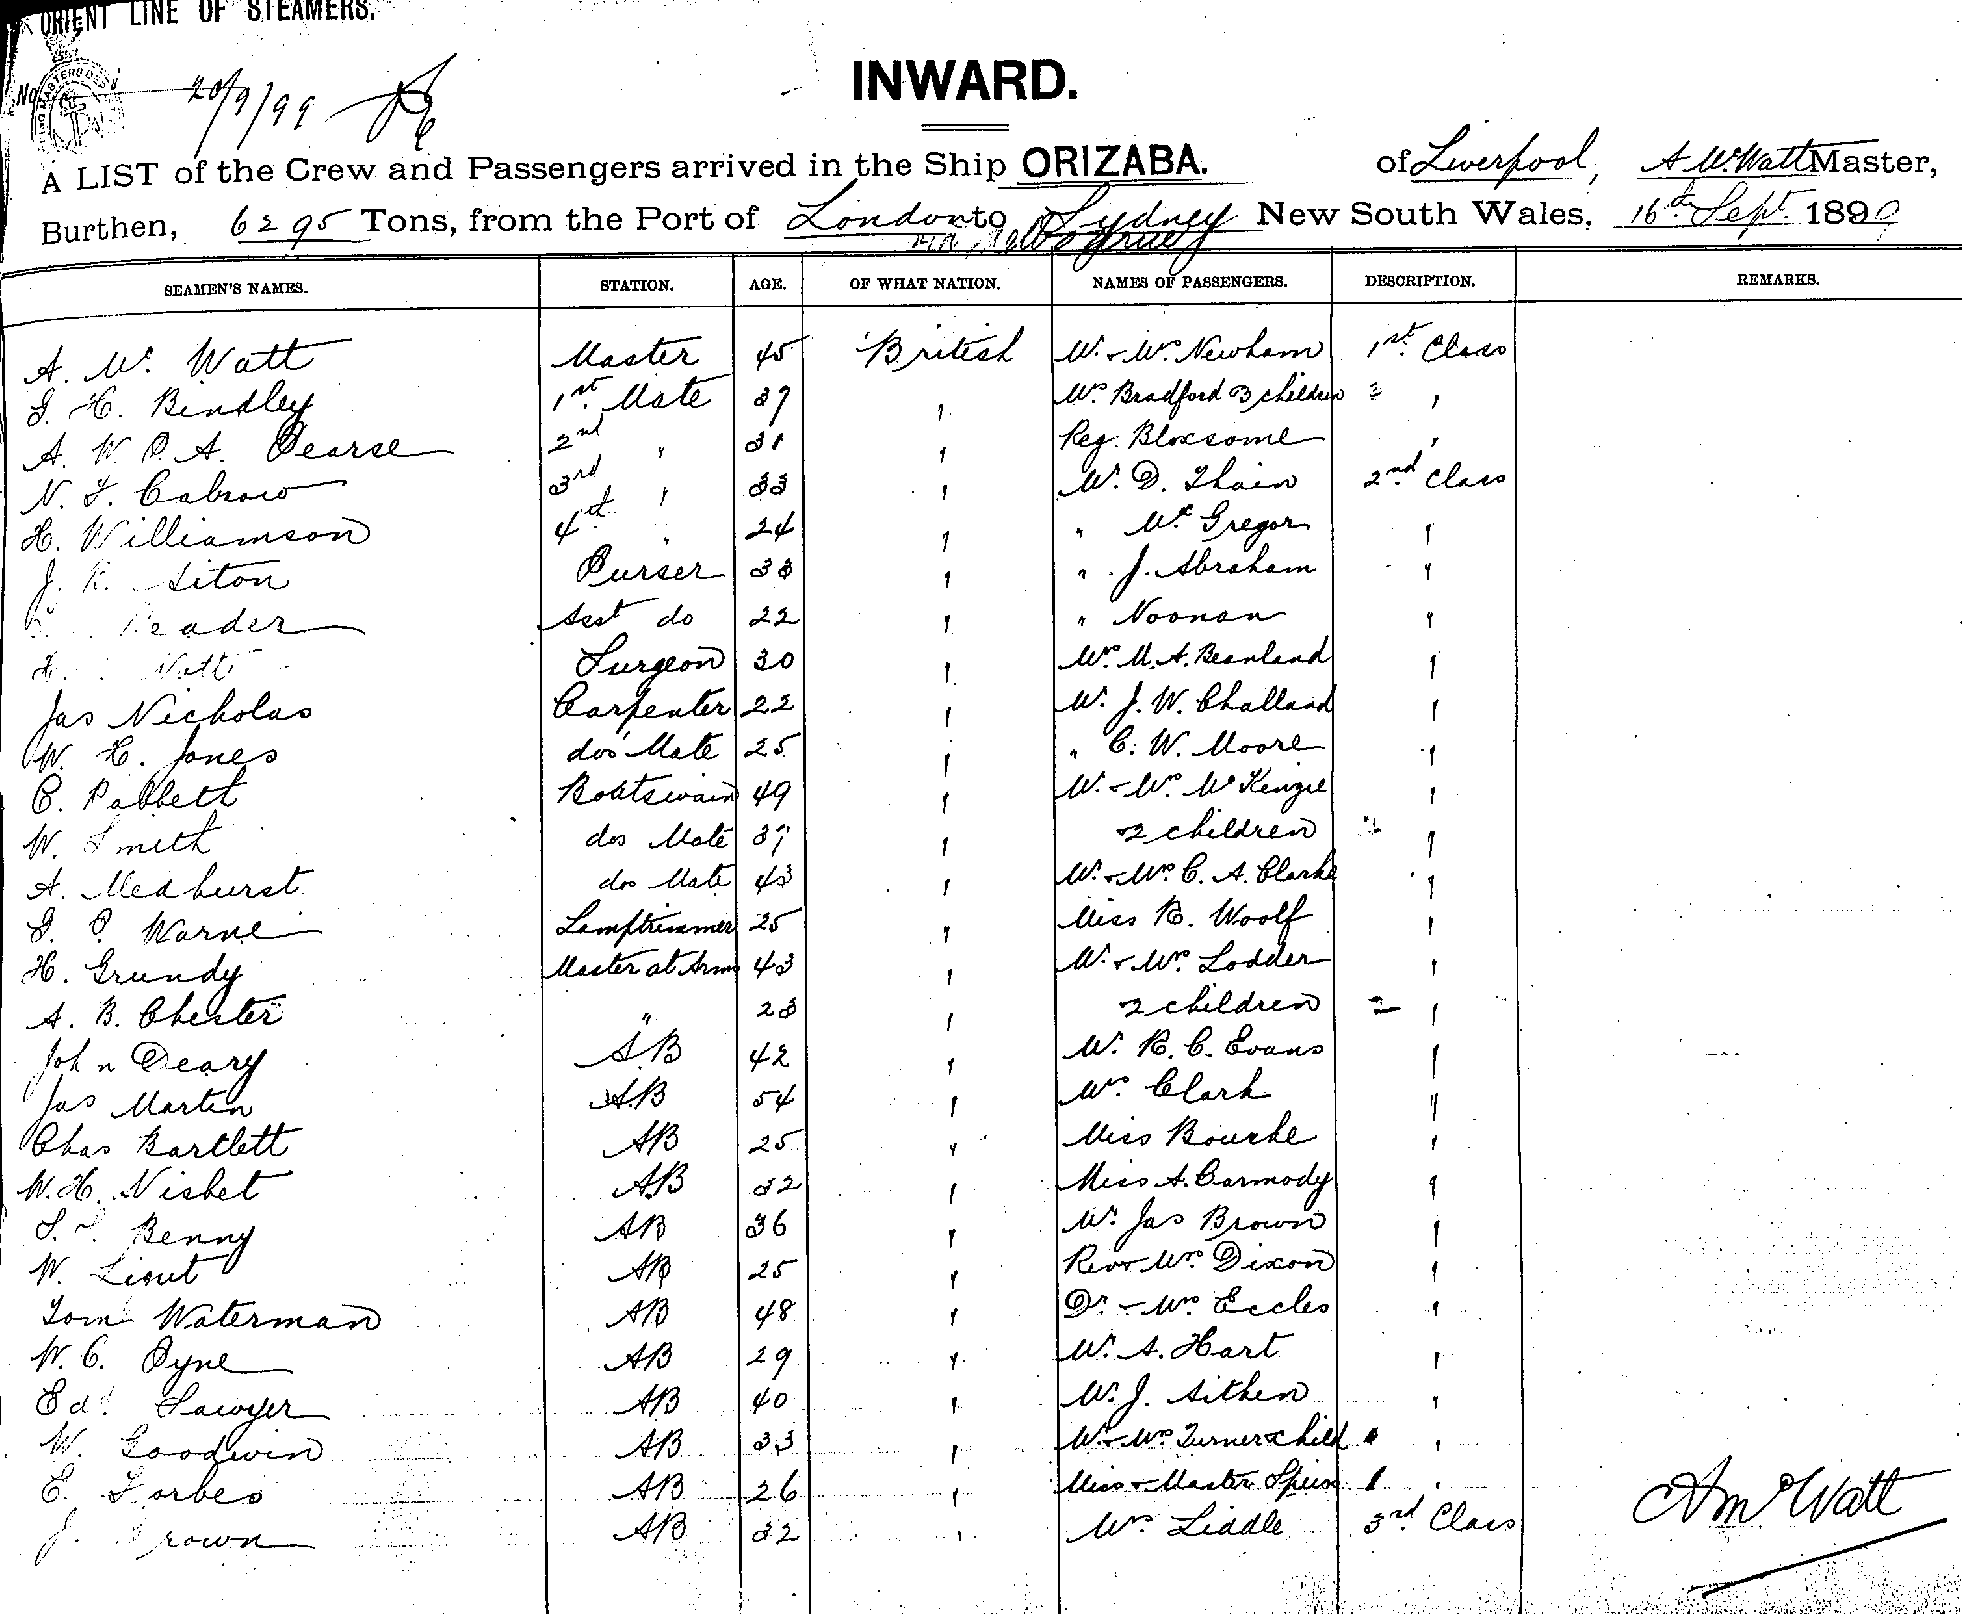 ORIENT LINE OF STEAMERS.
No
20/9/99
INWARD.
A LIST of the Crew and Passengers arrived in the Ship ORIZABA. of Liverpool, A. Mc. Watt Master,
Burthen, 6295 Tons, from the Port of London to Sydney New South Wales, 16th Sept. 1899
via Melbourne
SEAMEN'S NAMES. STATION. AGE. OF WHAT NATION. NAMES OF PASSENGERS. DESCRIPTION. REMARKS.
A. Mc. Watt Master 45 British Mr. & Mrs. Newham 1st. Class
G. H. Bindley 1st. Mate 37 " Mrs Bradford 3 children 3 "
A. W. P. A. Pearse 2nd " 31 " Reg. Bloxsome "
N. F. 33 " Mr. D. Thain 2nd Class
H. Williamson 4th " 24 " " Mc Gregor "
J. R. Siton Purser 33 " " J. Abraham "
Reader Asst do 22 " " Noonan "
Watt Surgeon 30 " Mrs. M. A. Beanland "
Jas Nicholas Carpenter 22 " Mr. J. W. Challand "
W. H. Jones dos Mate 25 " " C. W. Moore "
C. Pabbett Boatswain 49 " Mr. & Mrs. Mc Kenzie "
W. Smith dos Mate 37 " 2 children 2 "
A. Medhurst do Mate 43 " Mr. & Mrs. C. A. Clarke "
G. P. Warne Lamptrimmer 25 " Miss R. Woolf "
H. Grundy Master at Arms 43 " Mr. & Mrs. Lodder "
A. B. Chester " 23 " 2 children 2 "
John Deary AB 42 " Mr. R. C. Evans "
Jas Martin AB 54 " Mrs. Clark "
Chas Bartlett AB 25 " Miss Bourke "
W. H. Nisbet AB 32 " Miss A. Carmody "
Benny AB 36 " Mr. Jas Brown "
W. AB 25 " Rev & Mrs. Dixon "
Tom Waterman AB 48 " Dr. & Mrs. Eccles "
W. C. Pyne AB 29 " Mr. A. Hart "
Edd. Sawyer AB 40 " Mr. J. Aitken "
W. Goodwin AB 33 " Mr & Mrs Turner & child 1 "
E. Forbes AB 26 " Miss & Master 1 "
J. Brown AB 32 " Mrs. Liddle 3rd Class
A Mc Watt